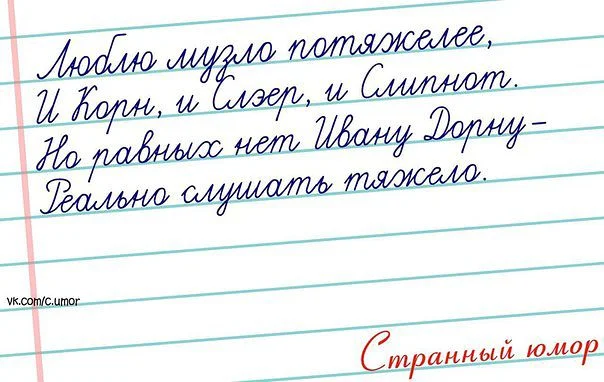 Люблю музло потяжелее,
И Корн, и Слэер, и Слипнот.
Но равных нет Ивану Дорну–
Реально слушать тяжело.
vk.com/c.umor
Странный юмор